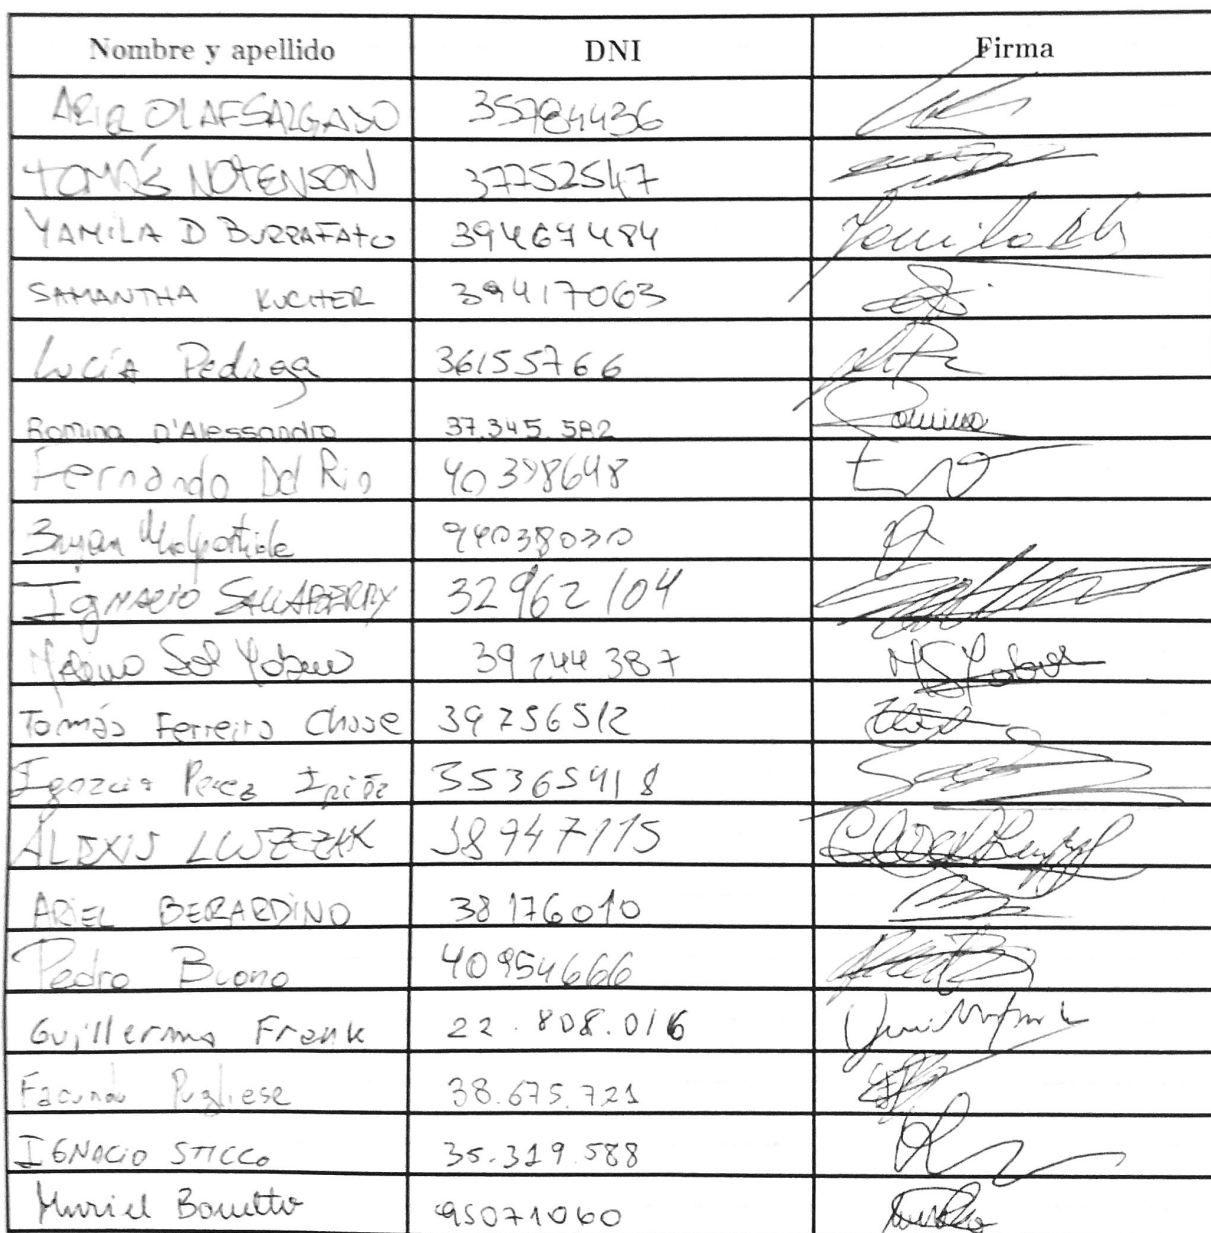 Nombre y apellido DNI Firma
ARIEL OLAF SALGADO 35784436
TOMÁS NOTENSON 37752547
YAMILA D BURRAFATO 39467484
SAMANTHA KUCHER 39417063
Lucía Pedraza 36155766
Romina D'Alessandro 37.345.582 Romina
Fernando Del Rio 40398648
Bryan Malpartida 94038030
Ignacio SALLABERRY 32962104
Sol 39244387
Tomás Ferreiro Chase 39756512
Ignacio Perez 35365918
ALEXIS LUSZCZAK 38947115
ARIEL BERARDINO 38176010
Pedro Buono 40954666
Guillermo Frank 22.808.016
Facundo Pugliese 38.675.721
IGNACIO STICCO 35.319.588
Muriel Bonetto 95071060